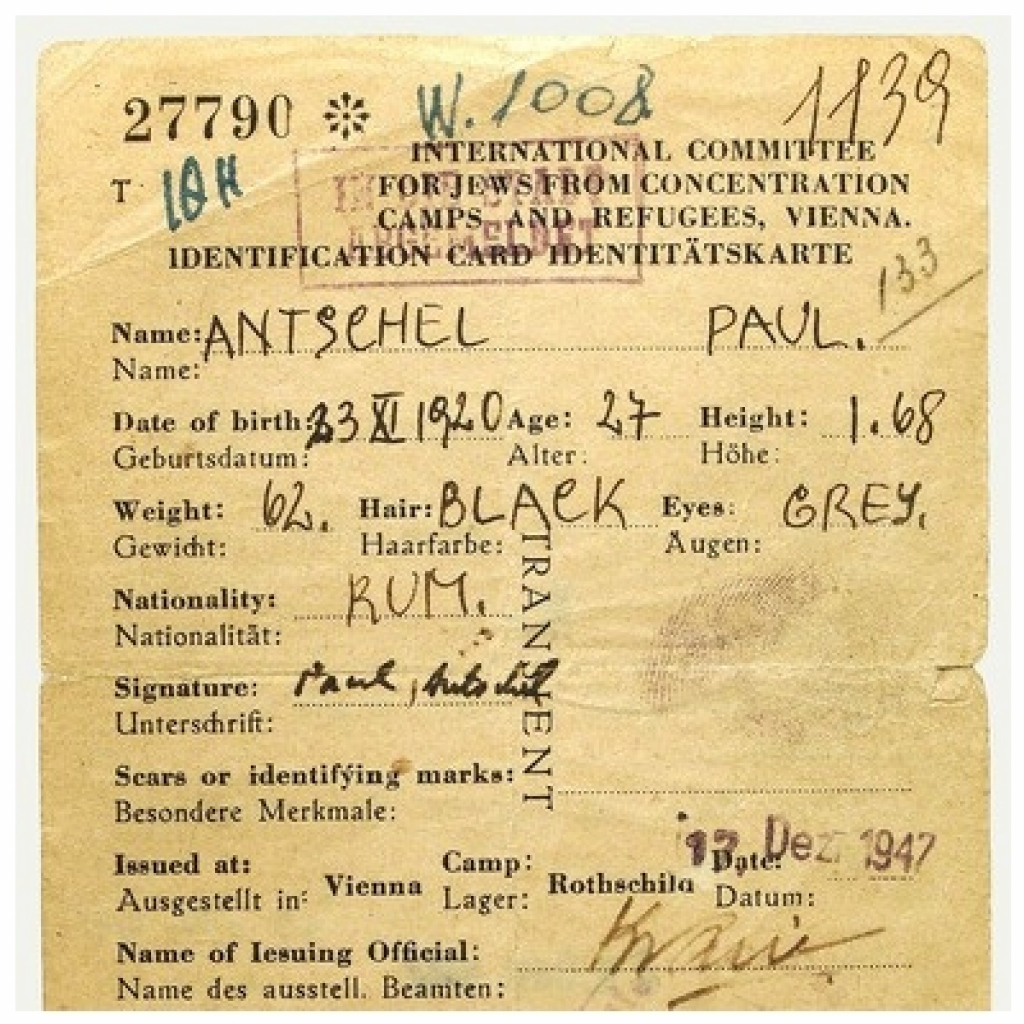 27790 W. 1008 1139
INTERNATIONAL COMMITTEE
T. FOR JEWS FROM CONCENTRATION
CAMPS AND REFUGEES, VIENNA.
IDENTIFICATION CARD IDENTITÄTSKARTE
133
Name: ANTSCHEL PAUL.
Name:
Date of birth: 23 XI 1920 Age: 27 Height: 1.68
Geburtsdatum: Alter: Höhe:
Weight: 62. Hair: BLACK Eyes: GREY.
Gewicht: Haarfarbe: Äugen:
Nationality: RUM.
Nationalität:
Signature: Paul, Antschel
Unterschrift:
Scars or identifying marks:
Besondere Merkmale:
Issued at: Vienna Camp: Rothschild Date: 17. Dez. 1947
Ausgestellt in: Lager: Datum:
Name of Iesuing Official:
Name des ausstell. Beamten: